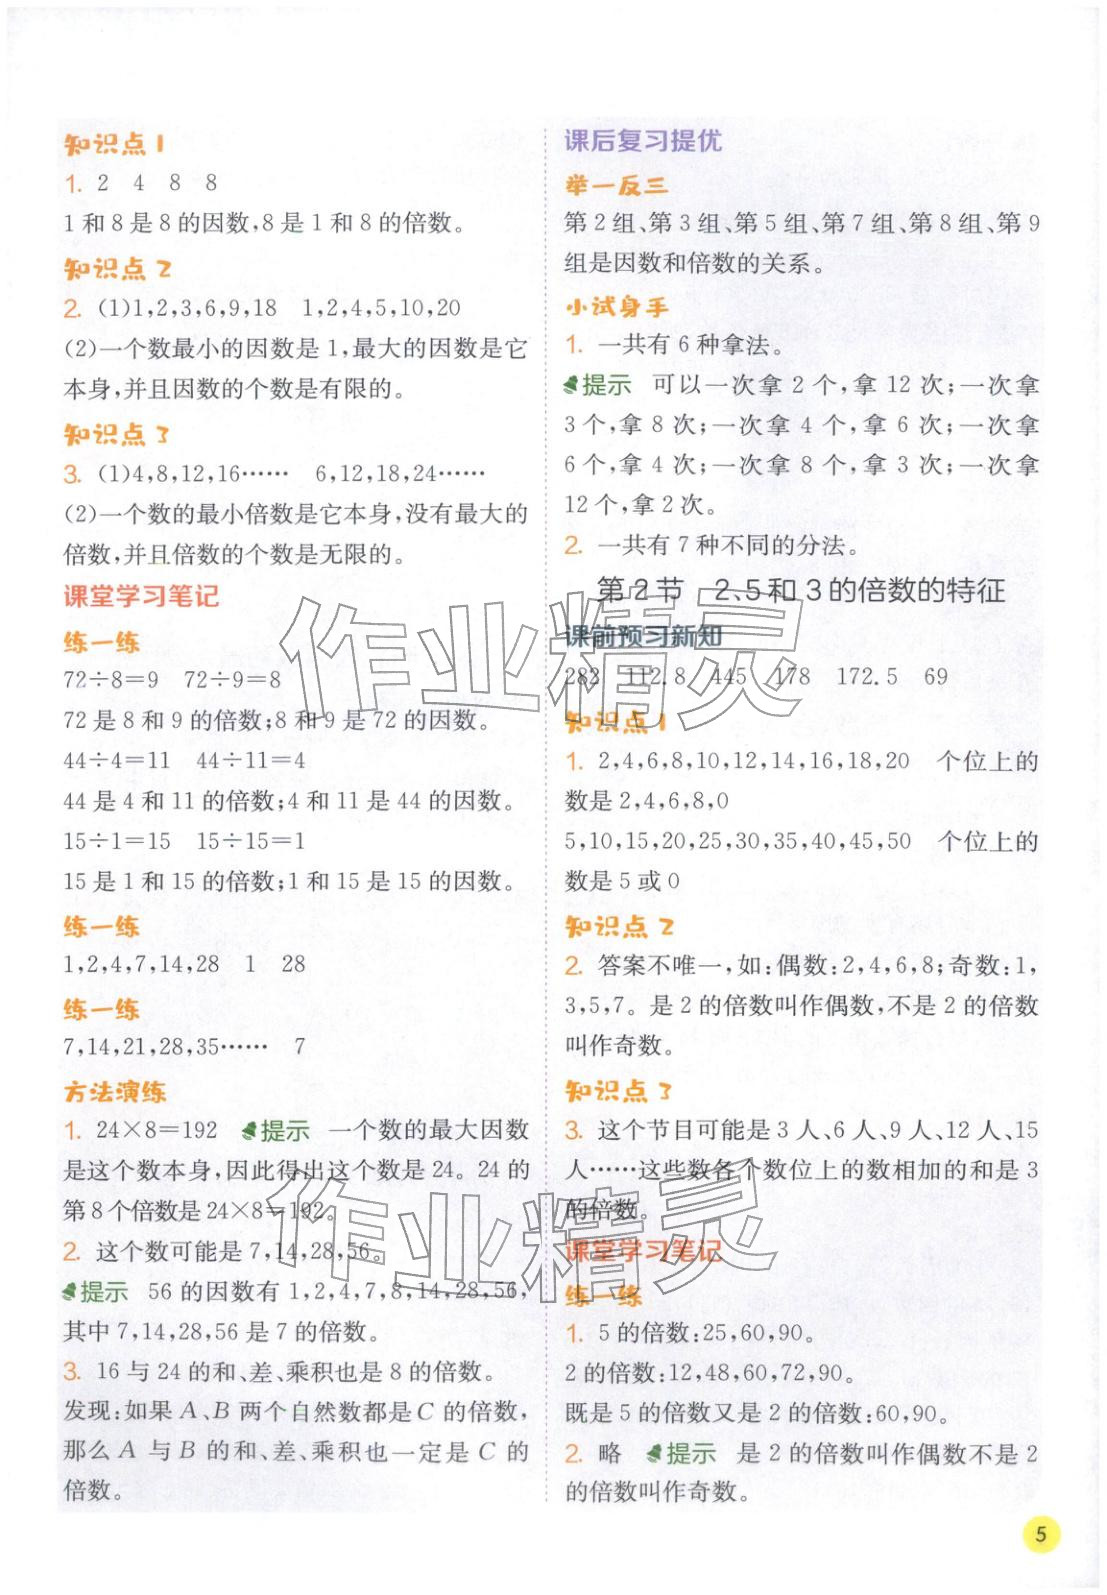 知识点1
1. 2 4 8 8
1和8是8的因数,8是1和8的倍数。
知识点2
2. (1)1,2,3,6,9,18 1,2,4,5,10,20
(2)一个数最小的因数是1,最大的因数是它
本身,并且因数的个数是有限的。
知识点3
3. (1)4,8,12,16…… 6,12,18,24……
(2)一个数的最小倍数是它本身,没有最大的
倍数,并且倍数的个数是无限的。
课堂学习笔记
练一练
72÷8=9 72÷9=8
72是8和9的倍数;8和9是72的因数。
44÷4=11 44÷11=4
44是4和11的倍数;4和11是44的因数。
15÷1=15 15÷15=1
15是1和15的倍数;1和15是15的因数。
练一练
1,2,4,7,14,28 1 28
练一练
7,14,21,28,35…… 7
方法演练
1. 24×8=192 提示 一个数的最大因数
是这个数本身,因此得出这个数是24。24的
第8个倍数是24×8=192。
2. 这个数可能是7,14,28,56。
提示 56的因数有1,2,4,7,8,14,28,56,
其中7,14,28,56是7的倍数。
3. 16与24的和、差、乘积也是8的倍数。
发现:如果A、B两个自然数都是C的倍数,
那么A与B的和、差、乘积也一定是C的
倍数。
课后复习提优
举一反三
第2组、第3组、第5组、第7组、第8组、第9
组是因数和倍数的关系。
小试身手
1. 一共有6种拿法。
提示 可以一次拿2个,拿12次;一次拿
3个,拿8次;一次拿4个,拿6次;一次拿
6个,拿4次;一次拿8个,拿3次;一次拿
12个,拿2次。
2. 一共有7种不同的分法。
第2节 2、5和3的倍数的特征
课前预习新知
283 112.8 445 178 172.5 69
知识点1
1. 2,4,6,8,10,12,14,16,18,20 个位上的
数是2,4,6,8,0
5,10,15,20,25,30,35,40,45,50 个位上的
数是5或0
知识点2
2. 答案不唯一,如:偶数:2,4,6,8;奇数:1,
3,5,7。是2的倍数叫作偶数,不是2的倍数
叫作奇数。
知识点3
3. 这个节目可能是3人、6人、9人、12人、15
人……这些数各个数位上的数相加的和是3
的倍数。
课堂学习笔记
练一练
1. 5的倍数:25,60,90。
2的倍数:12,48,60,72,90。
既是5的倍数又是2的倍数:60,90。
2. 略 提示 是2的倍数叫作偶数不是2
的倍数叫作奇数。
5
作业精灵
作业精灵